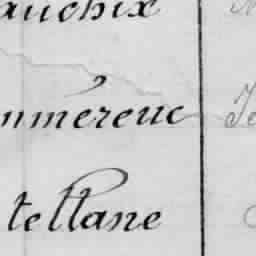 auchix
mméreuc
tellane